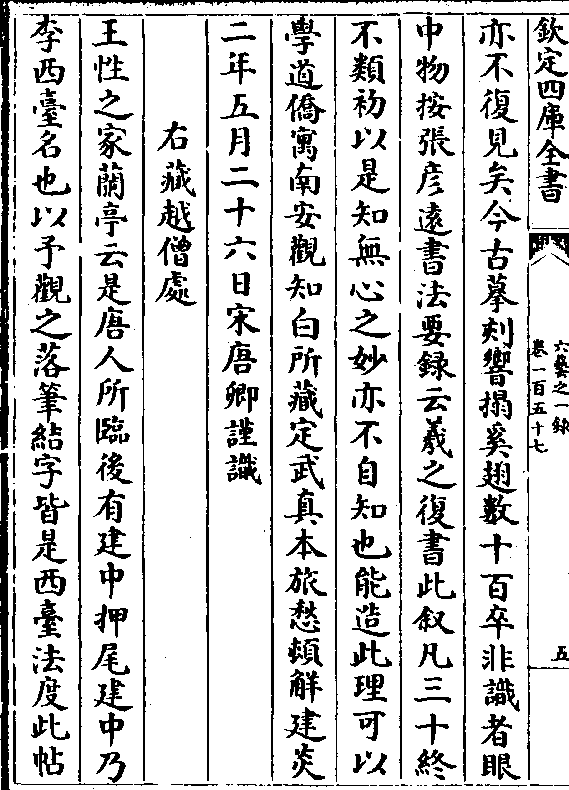 欽定四庫全書
六藝之一錄
卷一百五十七
五
亦不復見矣今古摹刻響搨奚翅數十百卒非識者眼
中物按張彦遠書法要録云羲之復書此叙凡三十終
不類初以是知無心之妙亦不自知也能造此理可以
學道僑寓南安觀知白所藏定武真本旅愁頓解建炎
二年五月二十六日宋唐卿謹識
右藏越僧處
王性之家蘭亭云是唐人所臨後有建中押尾建中乃
李西臺名也以予觀之落筆結字皆是西臺法度此帖